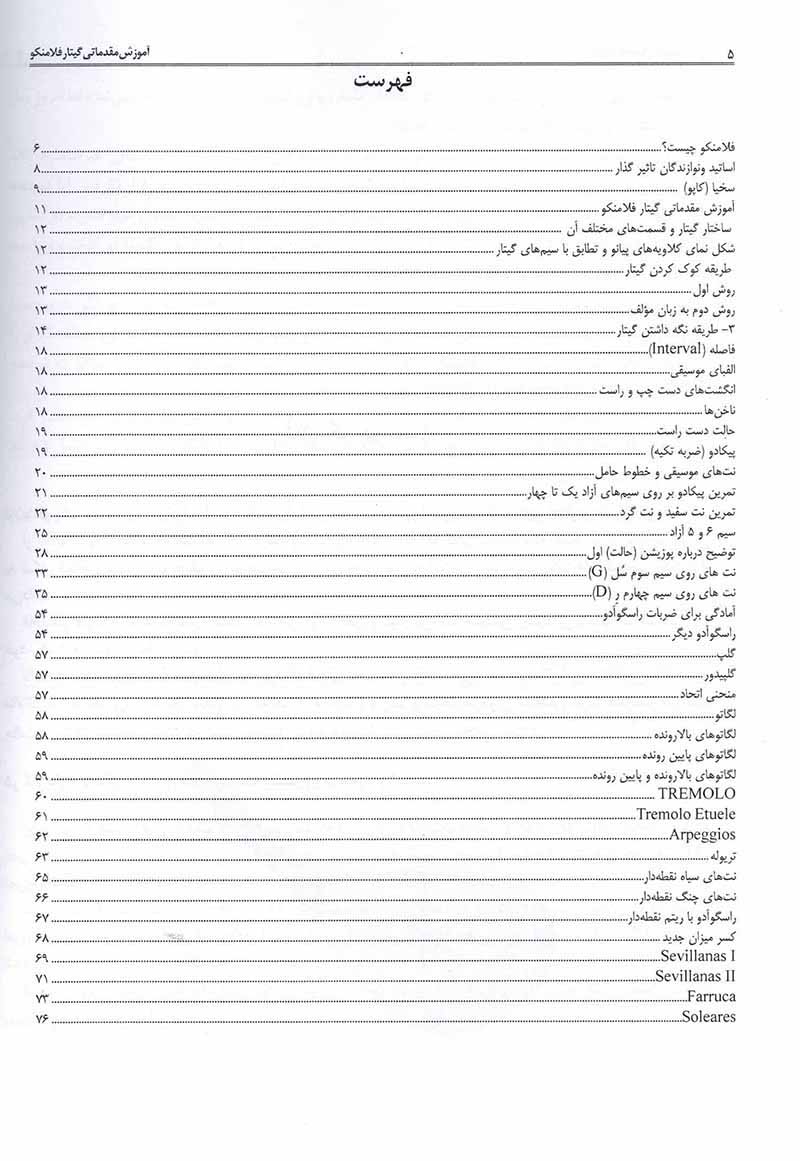 ۵ آموزش مقدماتی گیتار فلامنکو
فهرست
فلامنکو چیست؟ ........ ۶
اساتید ونوازندگان تاثیر گذار ........ ۸
سخیا (کاپو) ........ ۹
آموزش مقدماتی گیتار فلامنکو ........ ۱۱
ساختار گیتار و قسمت‌های مختلف آن ........ ۱۲
شکل نمای کلاویه‌های پیانو و تطابق با سیم‌های گیتار ........ ۱۲
طریقه کوک کردن گیتار ........ ۱۲
روش اول ........ ۱۳
روش دوم به زبان مؤلف ........ ۱۳
۳- طریقه نگه داشتن گیتار ........ ۱۴
فاصله (Interval) ........ ۱۸
الفبای موسیقی ........ ۱۸
انگشت‌های دست چپ و راست ........ ۱۸
ناخن‌ها ........ ۱۸
حالت دست راست ........ ۱۹
پیکادو (ضربه تکیه) ........ ۱۹
نت‌های موسیقی و خطوط حامل ........ ۲۰
تمرین پیکادو بر روی سیم‌های آزاد یک تا چهار ........ ۲۱
تمرین نت سفید و نت گرد ........ ۲۲
سیم ۶ و ۵ آزاد ........ ۲۵
توضیح درباره پوزیشن (حالت) اول ........ ۲۸
نت های روی سیم سوم سُل (G) ........ ۳۳
نت های روی سیم چهارم رِ (D) ........ ۳۵
آمادگی برای ضربات راسگوآدو ........ ۵۴
راسگوآدو دیگر ........ ۵۴
گلپ ........ ۵۷
گلپیدور ........ ۵۷
منحنی اتحاد ........ ۵۷
لگاتو ........ ۵۸
لگاتوهای بالارونده ........ ۵۸
لگاتوهای پایین رونده ........ ۵۹
لگاتوهای بالارونده و پایین رونده ........ ۵۹
TREMOLO ........ ۶۰
Tremolo Etuele ........ ۶۱
Arpeggios ........ ۶۲
تریوله ........ ۶۳
نت‌های سیاه نقطه‌دار ........ ۶۵
نت‌های چنگ نقطه‌دار ........ ۶۶
راسگوآدو با ریتم نقطه‌دار ........ ۶۷
کسر میزان جدید ........ ۶۸
Sevillanas I ........ ۶۹
Sevillanas II ........ ۷۱
Farruca ........ ۷۳
Soleares ........ ۷۶